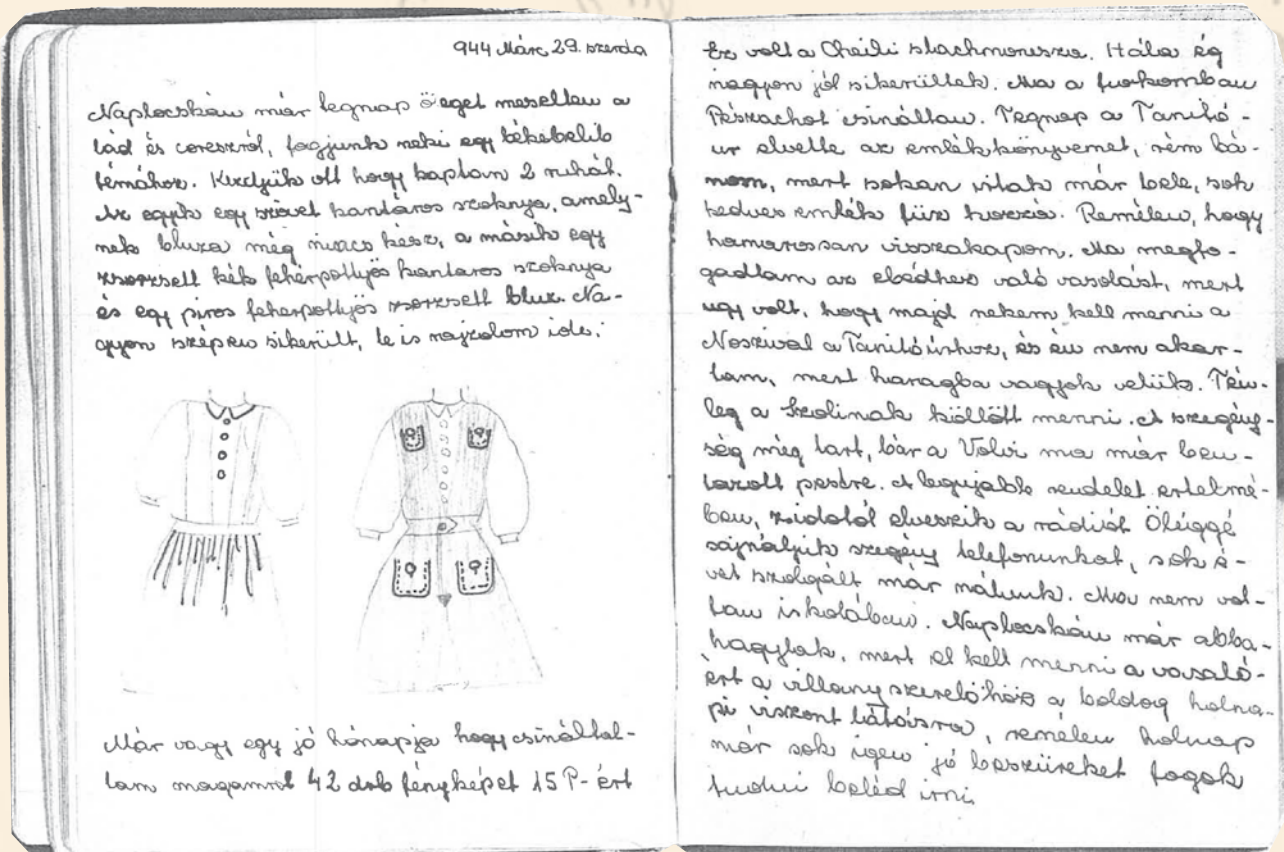 944 Márc 29. szerda
Naplocskám már tegnap eleget meséltem a
lád és coreszról, fogjunk neki egy békebelib
témához. Kezdjük ott hogy kaptam 2 ruhát.
Az egyik egy szövet kantáros szoknya, amely-
nek bluza még nincs kész, a másik egy
zsorzsett kék fehérpottyös kantáros szoknya
és egy piros feherpottyös zsorzsett bluz. Na-
gyon szépen sikerült, le is rajzolom ide:
Már vagy egy jó hónapja hogy csináltat-
tam magamról 42 drb fényképet 15 P-ért
Ez volt a Chaili slachmonesza. Hála ég
nagyon jól sikerültek. Ma a
Pészachot csináltam. Tegnap a Tanító-
ur elvette az emlékkönyvemet, rém bá-
nom, mert sokan irtak már bele, sok
kedves emlék füz hozzá. Remélem, hogy
hamarossan visszakapom. Ma megfo-
gadtam az ebédhez való vasalást, mert
ugy volt, hogy majd nekem kell menni a
Noszival a Tanítóúrhoz, és én nem akar-
tam, mert haragba vagyok velük. Tény-
leg a Szolinak köllött menni. A szegény-
ség még tart, bár a Volvi ma már beu-
tazott pestre. A legujabb rendelet értelmé-
ben, zsidótól elveszik a rádiót
sajnáljuk szegény telefonunkat, sok é-
vet szolgált már nálunk. Ma nem vol-
tam iskolában. Naplocskám már abba-
hagylak, mert el kell menni a vasaló-
ért a villanyszerelőhöz a boldog holna-
pi viszont látásra, remélem holnap
már sok igen jó beszüreket fogok
tudni beléd irni